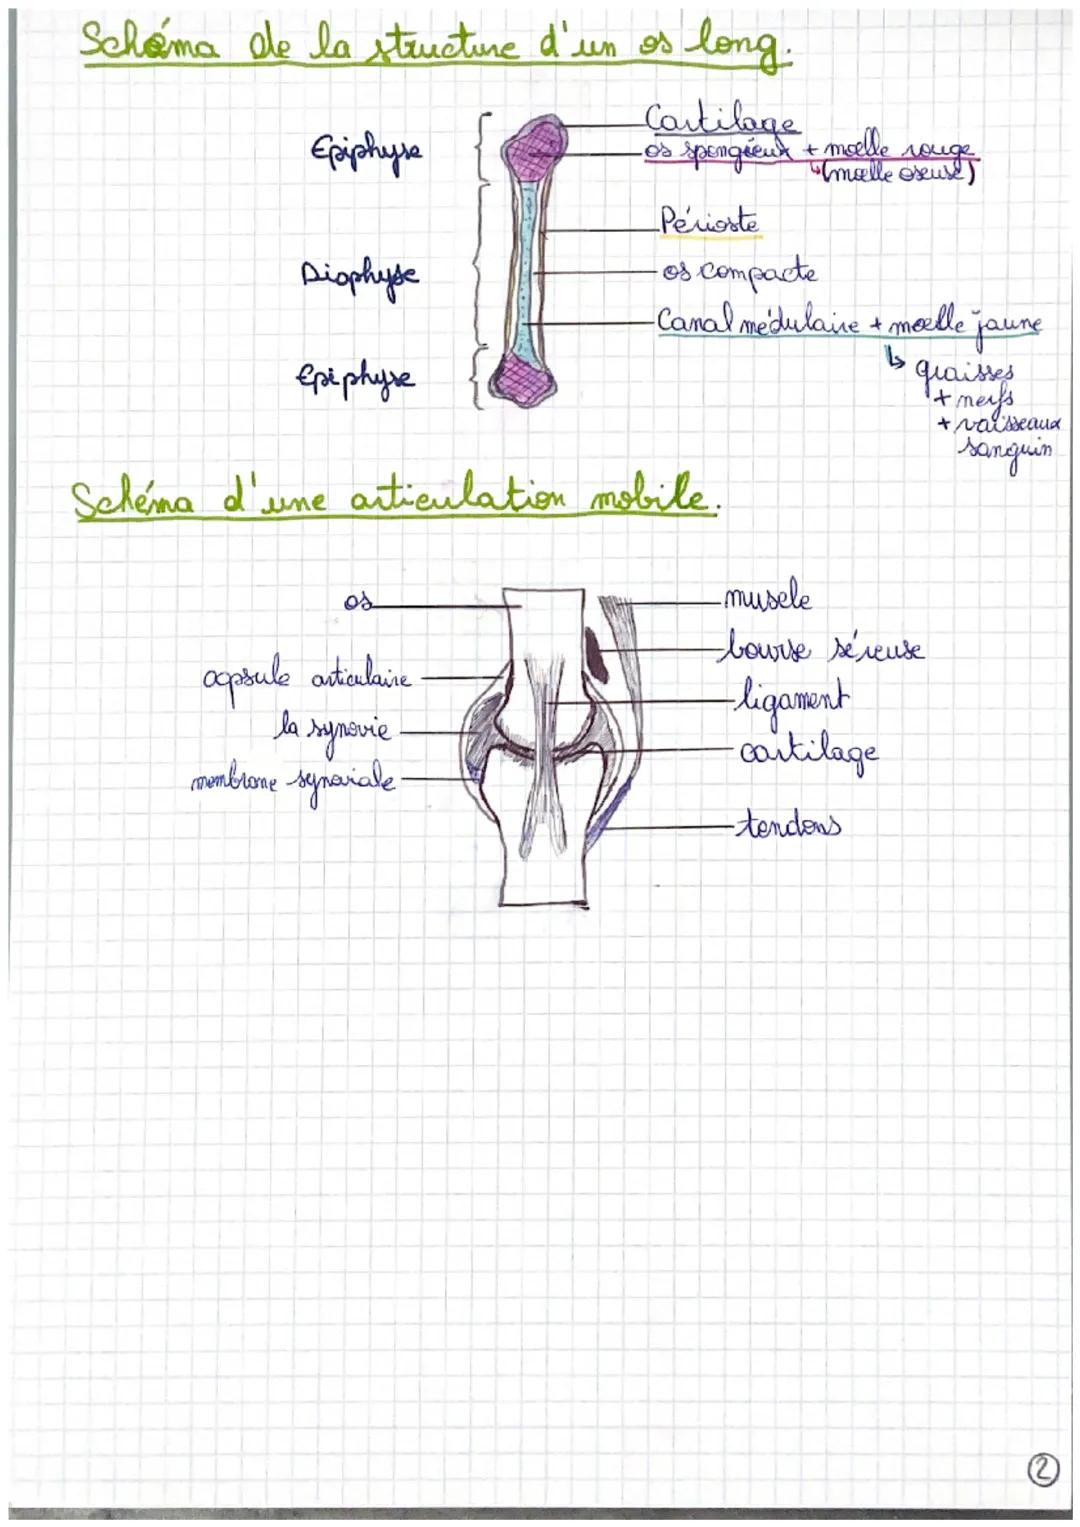 Schéma de la structure d'un os long.
Epiphyse
Cartilage
os spongieux + moelle rouge
↳ (moelle oseuse)
Périoste
Diaphyse
os compacte
Canal médulaire + moelle jaune
↳ graisses
+ nerfs
+ vaisseaux
sanguin
Epiphyse
Schéma d'une articulation mobile.
os
muscle
bourse séreuse
capsule articulaire
ligament
la synovie
cartilage
membrane synoviale
tendons
2